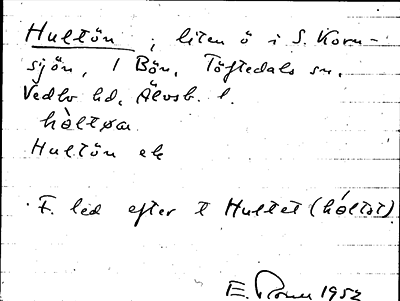 Hultön ; liten ö i S. Korn-
sjön, 1 Bön, Töftedals sn.
Vedbo hd. Älvsb. l.
hòltøa
Hultön ek
F. led efter t Hultet (hóltət)
E. 1952